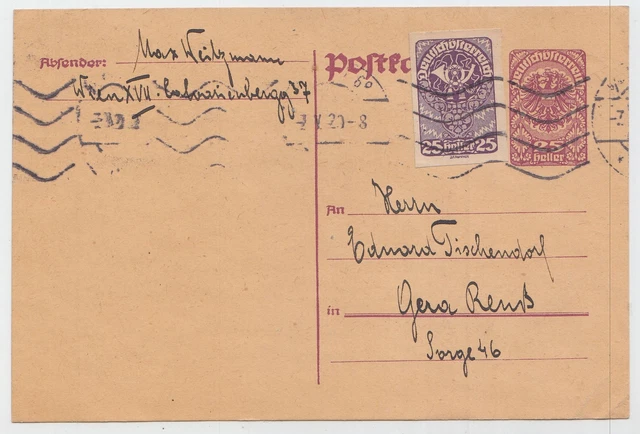 Absender: Max Weitzmann
Wien XVII.
37
Postk
50
Deutschösterreich
25 Heller 25
Deutschösterreich
25
Heller
V 20-8
An Herrn
Eduard Tischendorf
in Gera Reuß
Sorge 46